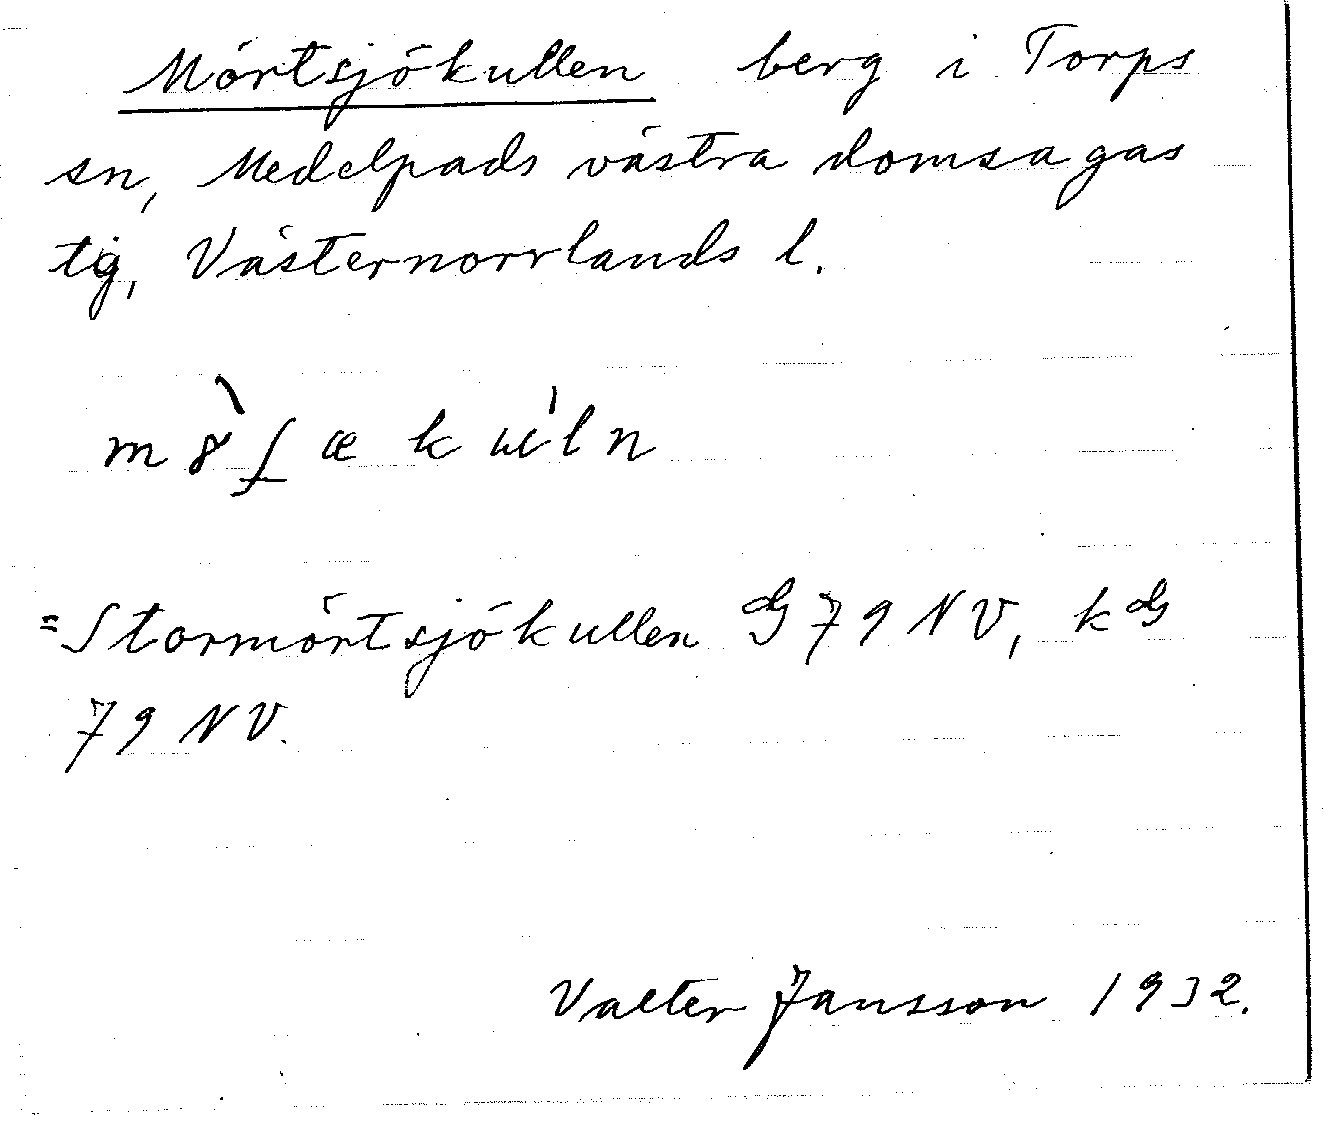 Mörtsjökullen berg i Torps
sn, Medelpads västra domsagas
tg, Västernorrlands l.
= Stormörtsjökullen G 79 NV, kG
79 NV.
Valter Jansson 1932.